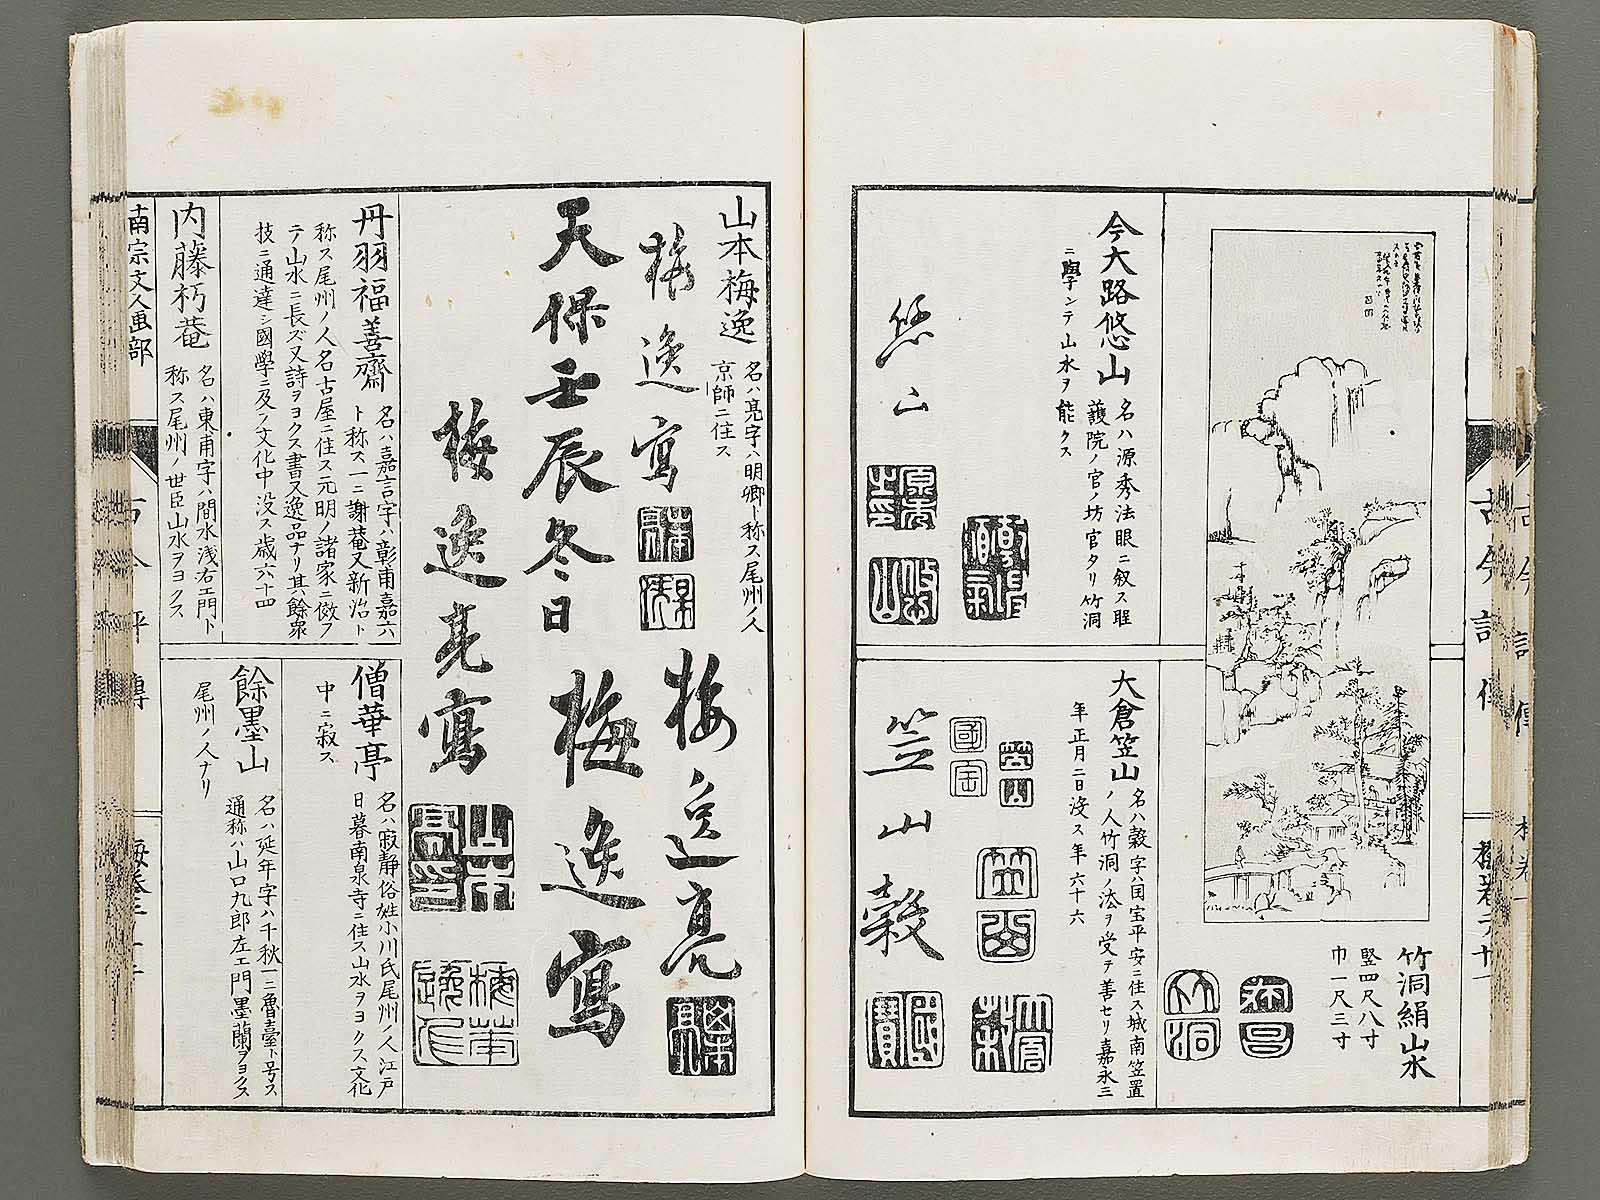 竹洞絹山水
竪四尺八寸
巾一尺三寸
今大路悠山
名ハ源秀法眼ニ叙ス聖
護院ノ官ノ坊官タリ竹洞
ニ學ンテ山水ヲ能クス
悠山
大倉笠山
名ハ穀字ハ国宝平安ニ住ス城南笠置
ノ人竹洞ノ法ヲ受テ善セリ嘉永三
年正月二日沒ス年六十六
笠山穀
山本梅逸
名ハ亮字ハ明卿ト称ス尾州ノ人
京師ニ住ス
梅逸寫
梅逸亮
天保壬辰冬日梅逸寫
梅逸亮寫
丹羽福善齋
名ハ嘉言字ハ彰甫嘉六
ト称ス一ニ謝菴又新治ト
称ス尾州ノ人名古屋ニ住ス元明ノ諸家ニ倣フ
テ山水ニ長ズ又詩ヲヨクス書又逸品ナリ其餘衆
技ニ通達シ國學ニ及ノ文化中没ス歳六十四
僧華亭
名ハ寂静俗姓小川氏尾州ノ人江戸
日暮南泉寺ニ住ス山水ヲヨクス文化
中ニ寂ス
内藤朽菴
名ハ東甫字ハ間水浅右エ門ト
称ス尾州ノ世臣山水ヲヨクス
餘墨山
名ハ延年字ハ千秋一ニ魯臺ト号ス
通称ハ山口九郎左エ門墨蘭ヲヨクス
尾州ノ人ナリ
南宗文人画部